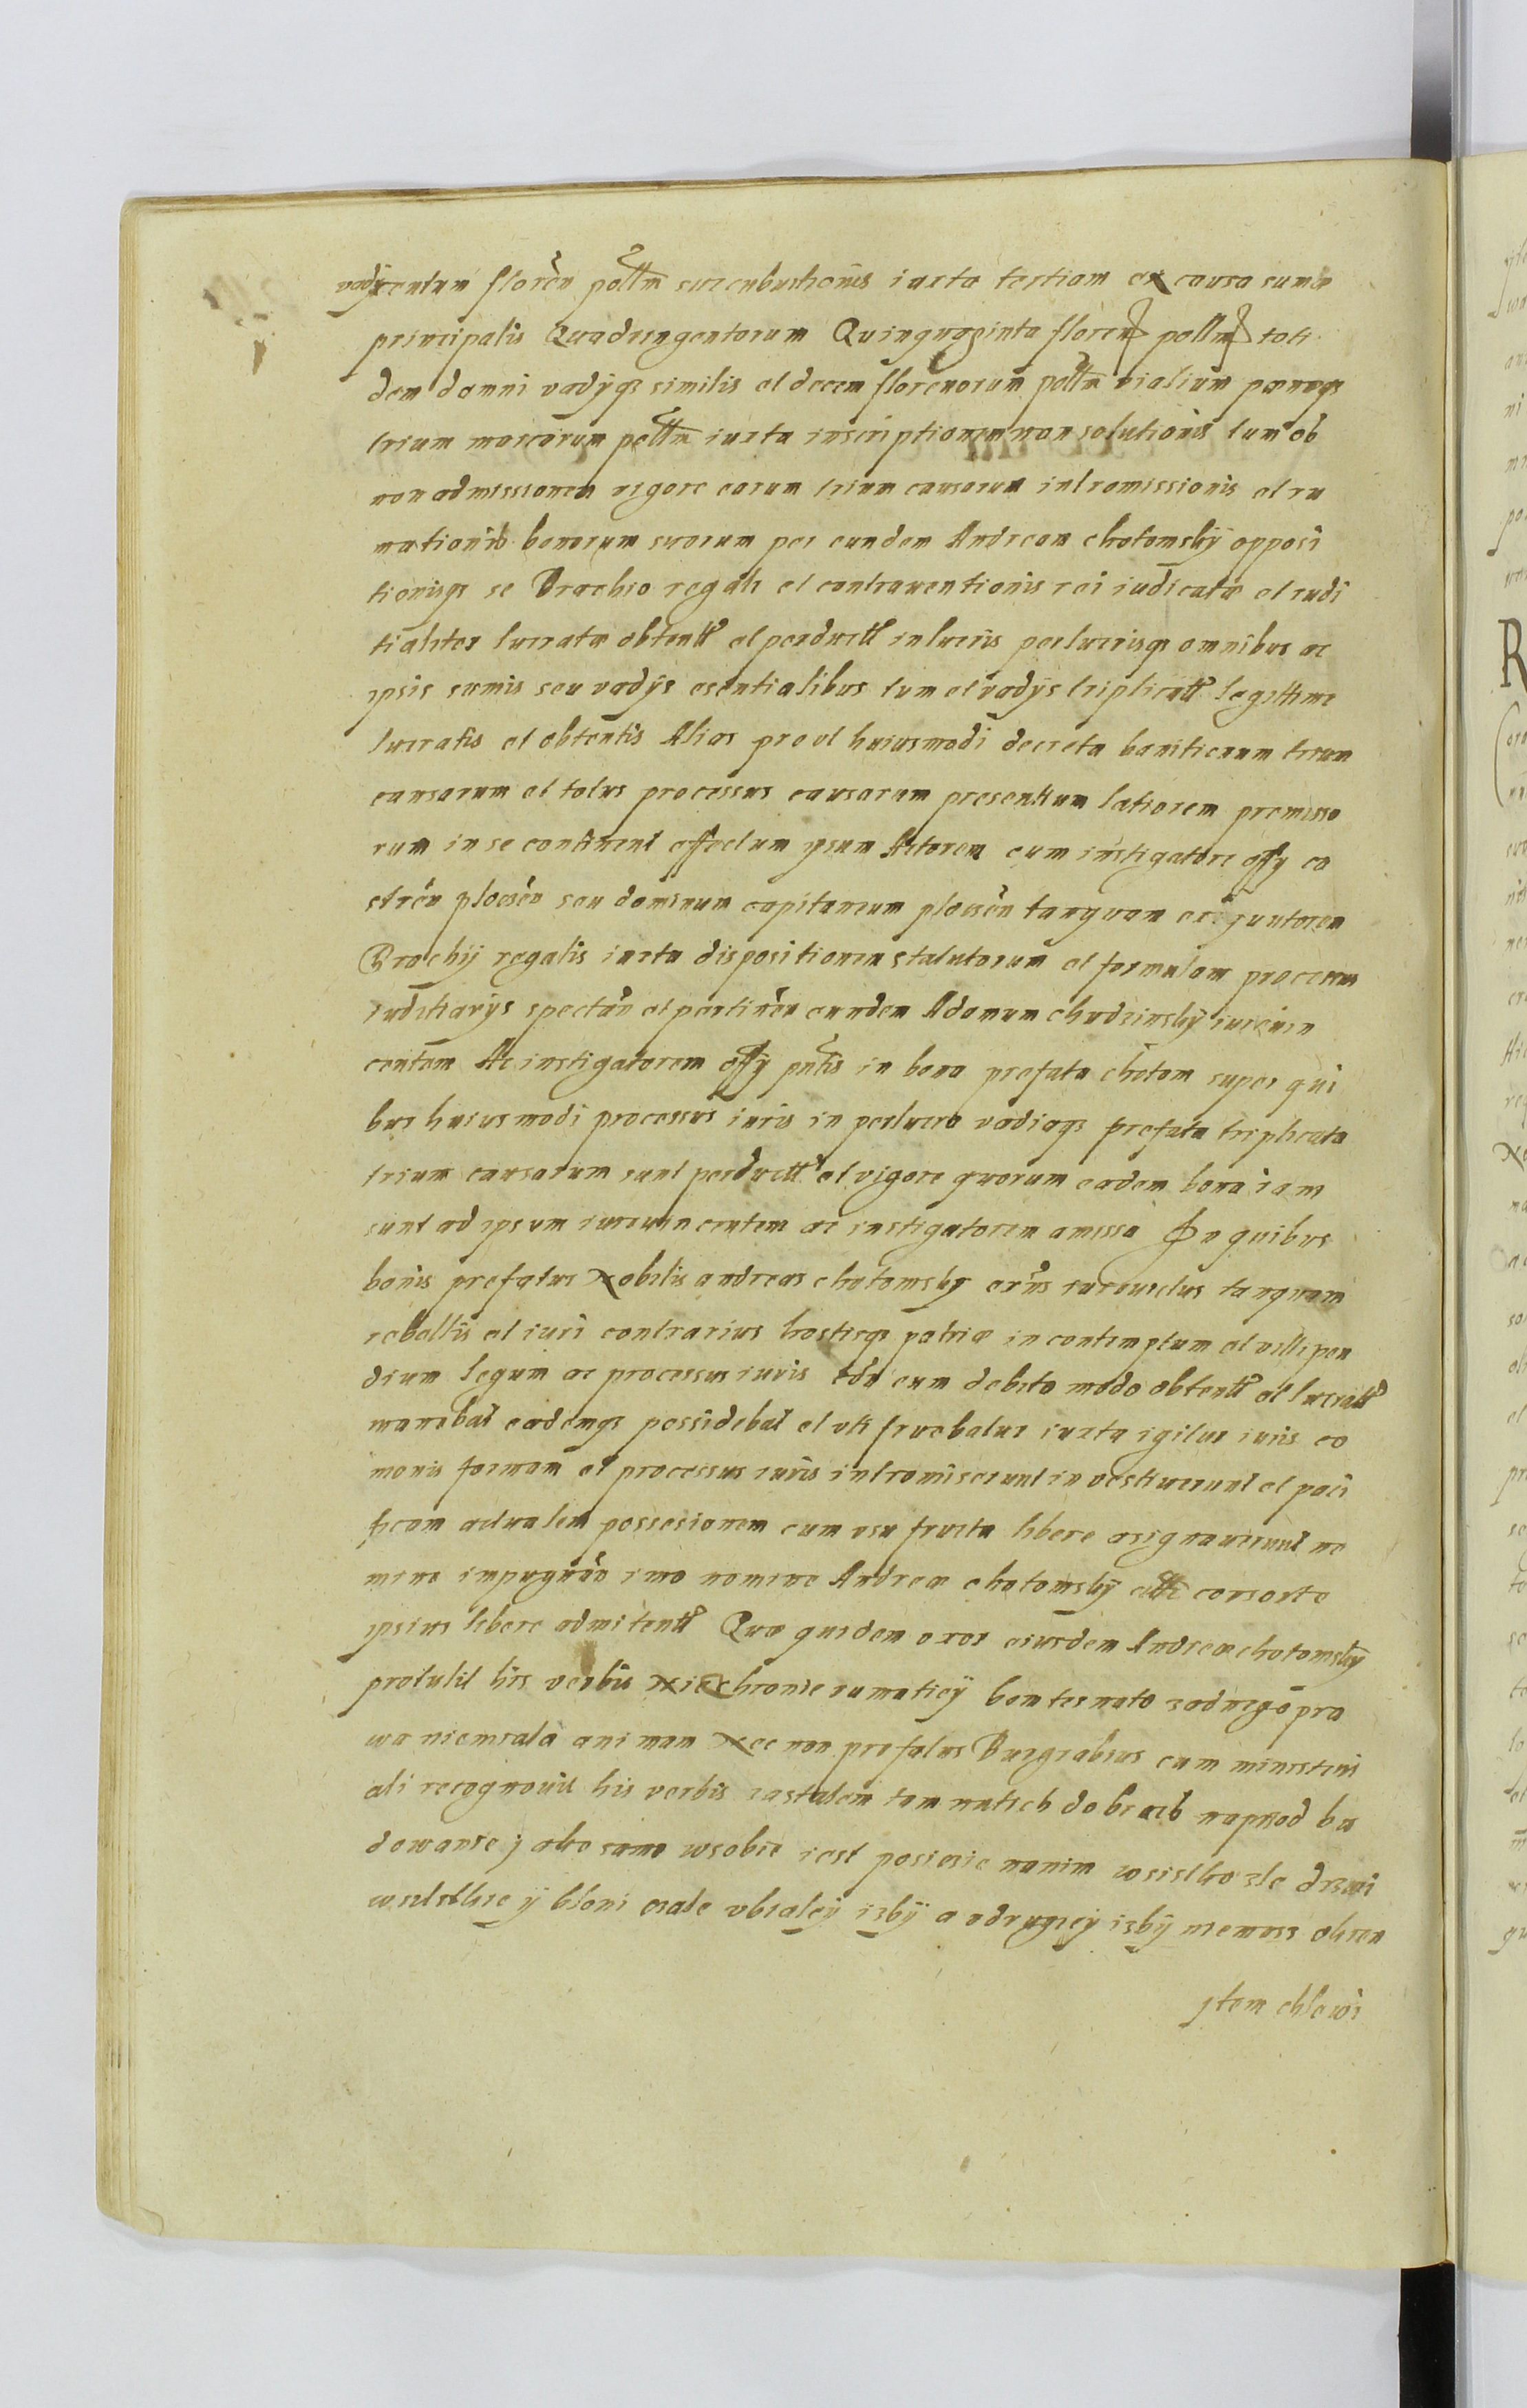 vadÿ centum floren pollm succubucionis iuxta tertiam ex causa sumæ
principalis Quadringentorum Quinquaginta floren pollm toti
dem damni vadÿqꝫ similis et decem florenorum pollm vialium pænaqꝫ
trium marcarum pollm iuxta inscriptionem non solutionis tum ob
non admissionem vigore earum trium causarum intromissionis et ru
mationis bonorum suorum per eundem Andream chotomskÿ opposi
tionisqꝫ se Brachio regali et contraventionis rei iudicatæ et iudi
tialiter lucratæ obtent et perduct in lucris perlucrisqꝫ omnibus ac
ipsis sumis seu vadÿs esentialibus tum et vadÿs triplicatt legittime
lucratis et obtentis Alias prout huiusmodi decreta banitionum trium
causarum et totus processus causarum presentium latiorem premisso
rum in se continent effectum ipsum Actorem cum instigatore offÿ ca
stren plocsen seu dominum capitaneum plocsen tanquam exequutorem
Brachÿ regalis iuxta dispositionem statutorum et formulam processus
iuditiarÿs spectan et pertinen eundem Adamum chudzinskÿ iurevin
centem Ac instigatorem offÿ pntis in bona prefata chotom super qui
bus huiusmodi processus iuris in perlucra vadiaqꝫ prefata triplicata
trium causarum sunt perductt et vigore quorum eadem bona iam
sunt ad ipsum iurevincentem ac instigatorem amissa In quibus
bonis prefatus Nobilis andreas chotomsky exns iurevictus tanquam
rebellis et iuri contrarius hostisqꝫ patriæ in contemptum et villipen
dium legum ac processus iuris cum debito modo obtentt et lucratt
manebat eademqꝫ possidebat et uti fruebatur iuxta igitur iuris co
monis formam et processus iuris intromiserunt investiverunt et paci
ficam actualem possesionem cum usu fructu libere asignaverunt ne
mine impugnan imo nomine Andreæ chotomskÿ consorte
ipsius libere admitentt Quæ quidem oxor eiusdem Andreæ chotomskÿ
protulit his verbis Nie chronie rumaticÿ bom tes nato zadnego pra
wa niemiala ani mam Nec non prefatus Burgrabius cum ministeri
ali recognovit his verbis zastalem tam natich dobrach naprzod bu
dowanie j ako samo wsobie iest posicie nanim wsistko zle drzwi
wsistkie ÿ bloni czale vbialeÿ izbÿ a vdrugieÿ izbÿ niemasz okien
Item chlewi